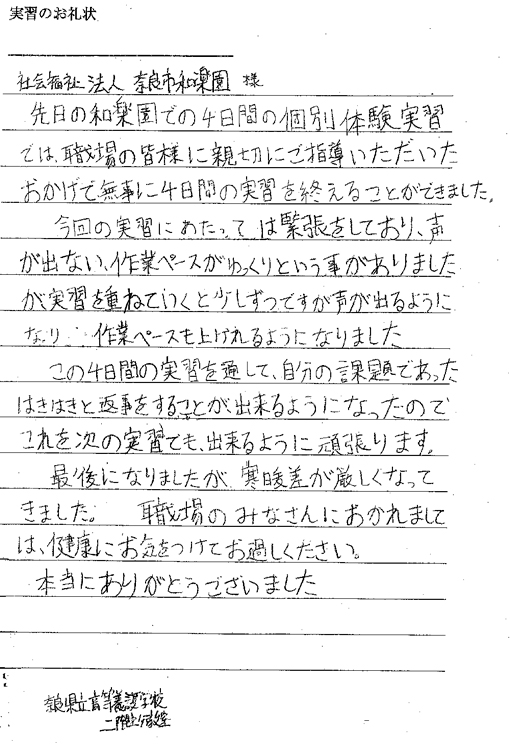 実習のお礼状
社会福祉法人 奈良市和楽園 様
先日の和楽園での4日間の個別体験実習
では、職場の皆様に親切にご指導いただいた
おかげで無事に4日間の実習を終えることができました。
今回の実習にあたっては緊張をしており、声
が出ない、作業ペースがゆっくりという事がありました
が、実習を重ねていくと少しずつですが声が出るように
なり 作業ペースも上げれるようになりました
この4日間の実習を通して、自分の課題であった
はきはきと返事をすることが出来るようになったので
これを次の実習でも、出来るように頑張ります。
最後になりましたが 寒暖差が厳しくなって
きました。 職場のみなさんにおかれまして
は、健康にお気をつけてお過しください。
本当にありがとうございました
奈良県立高等養護学校
二階堂分教室